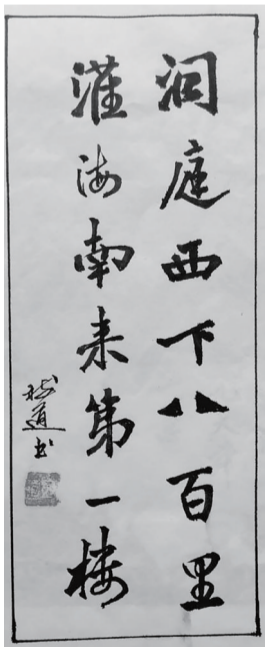 洞庭西下八百里
淮海南来第一楼
道书